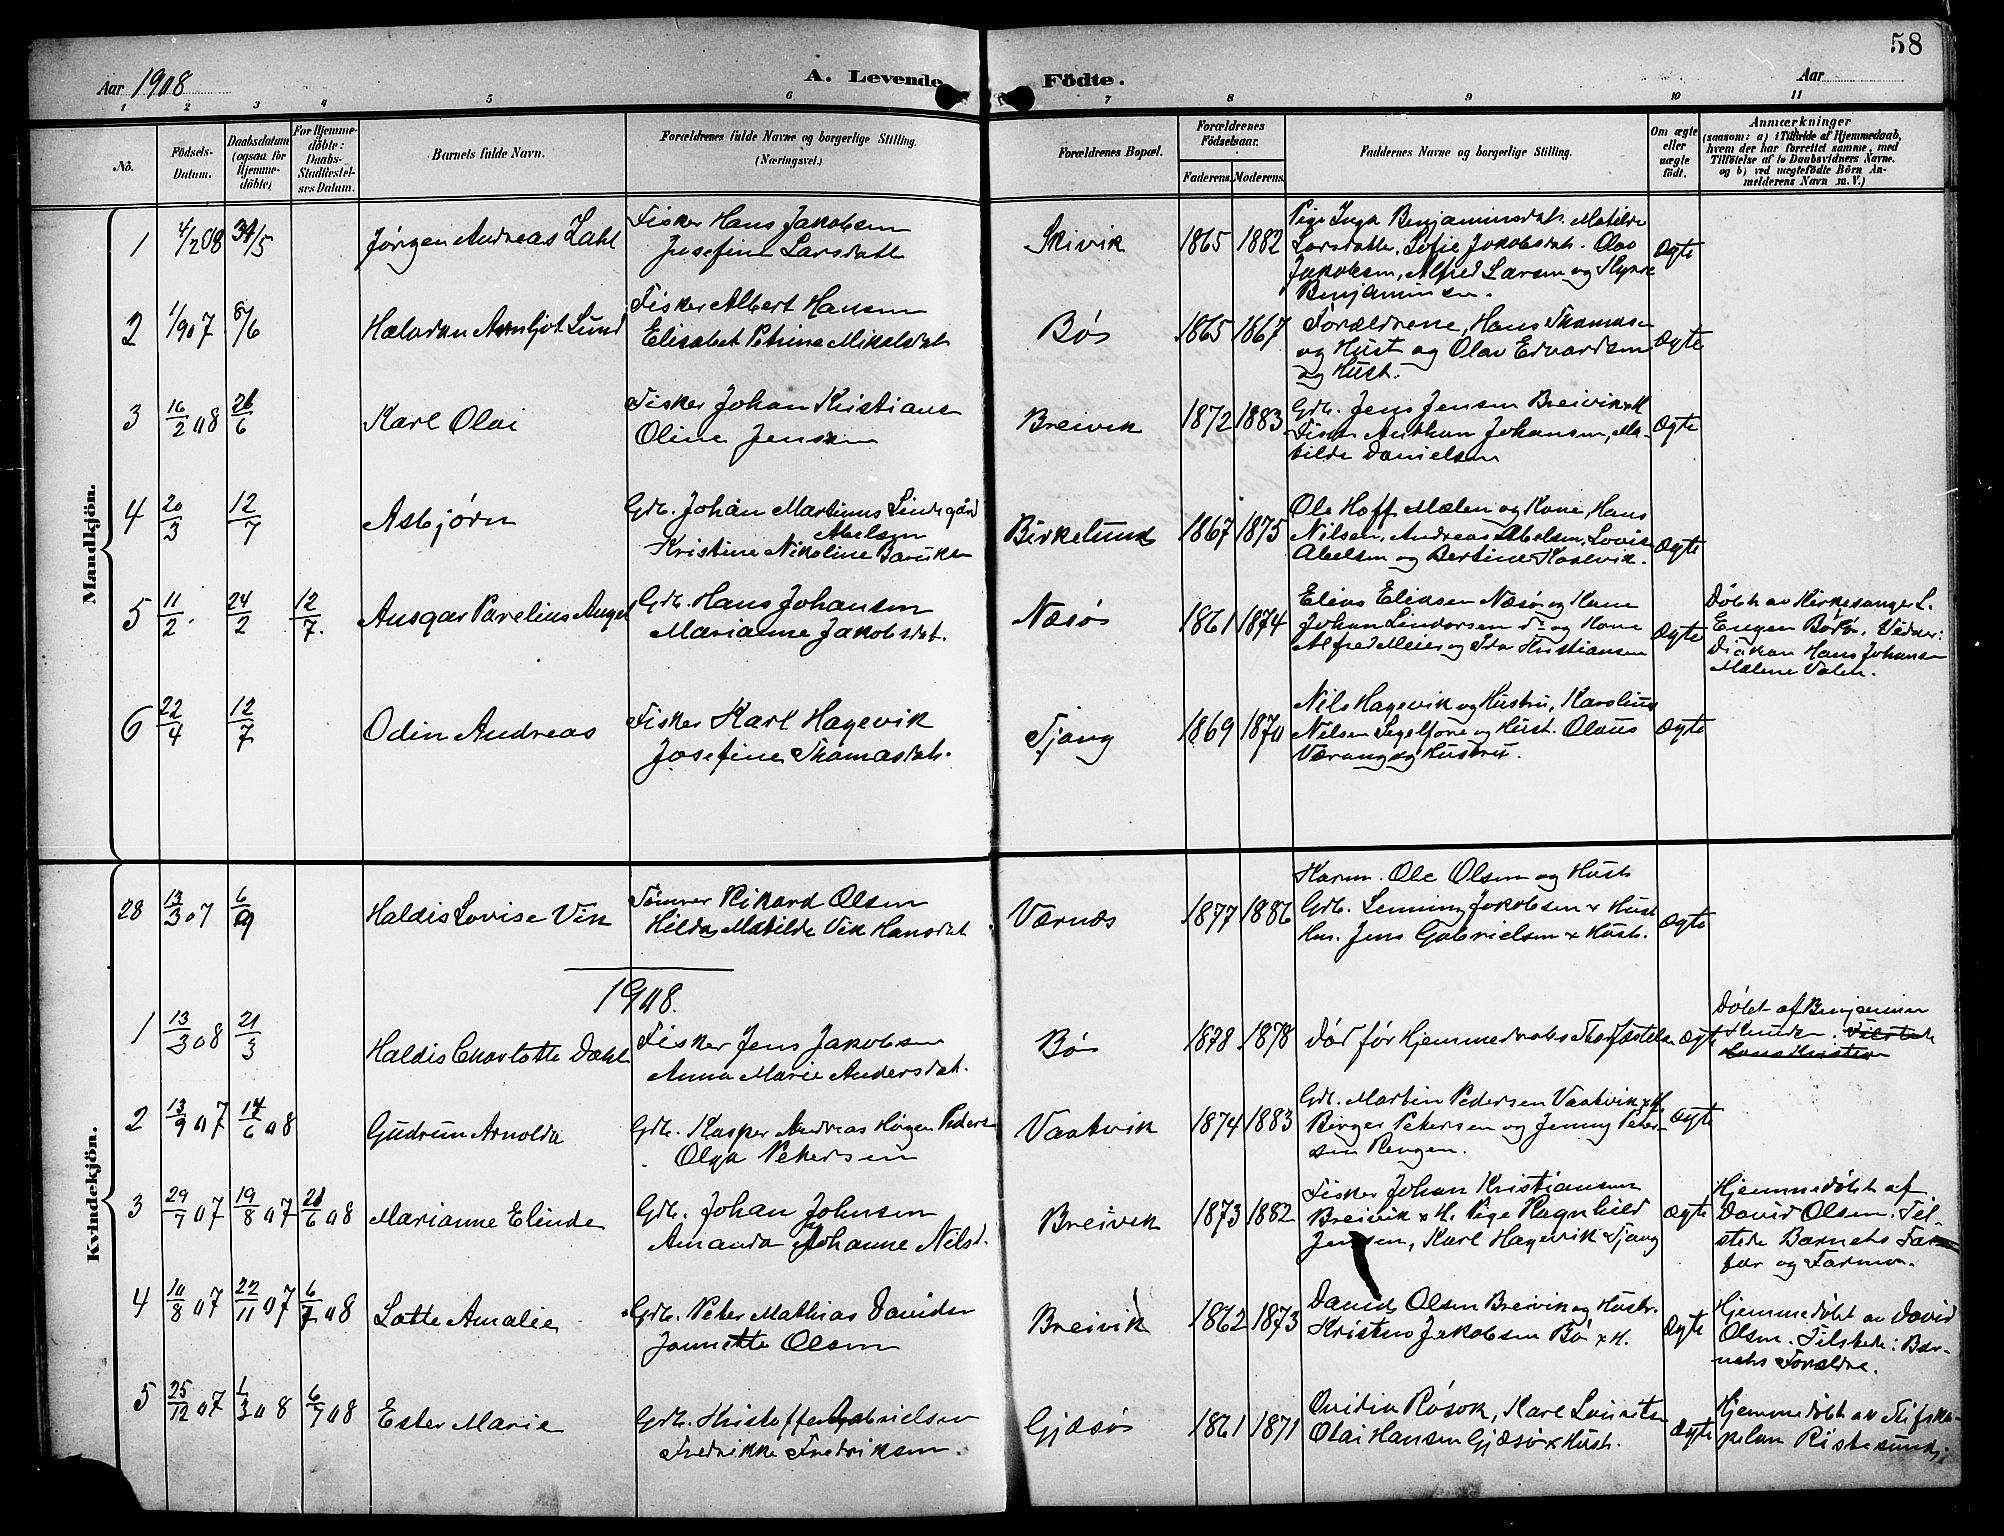 58
Aar 1908
A. Levende Födte.
Aar
1 2 3 4 5 6 7 8 9 10 11
No.
Födsels-Datum.
Daabsdatum (ogsaa for Hjemme-döbte)
For Hjemme-döbte: Daabs-Stadfæstel-ses Datum.
Barnets fulde Navn.
Forældrenes fulde Navne og borgerlige Stilling. (Næringsvei.)
Forældrenes Bopæl.
Forældrenes Födselsaar.
Faderens. Moderens.
Faddernes Navne og borgerlige Stilling.
Om ægte eller uægte födt.
Anmærkninger
(saasom: a) i Tilfælde af Hjemmedaab,
hvem der har forrettet samme, med
Tilföielse af to Daabsvidners Navne.
og b) ved uægtefödte Börn An-
melderens Navn m. V.)
Mandkjön.
1 4/2 08 /5 Jørgen Andreas Dahl
Fisker Hans Jakobsen
Josefine Larsdatt
Skivik 1865 1882
Pige Inga Benjaminsdat. Matilde
Larsdatter. Sofie Jakobsdat. Olav
Jakobsen, Alfred Larsen og
Benjaminsen.
Ægte
2 1/9 07 8/6 Halvdan Arnljot Lund
Fisker Albert Hansen
Elisabet Petrine Mikalsdat
Bøs 1865 1867
Forældrene, Hans Thomasen
og Hust og Olav Edvardsen
og Hust.
Ægte
3 16/2 08 26/6 Karl Olai
Fisker Johan Kristiansen
Oline Jensen
Breivik 1872 1883
Grb. Jens Jensen Breivik x H
Fisker Johansen, Ma-
tilde Danielsen
Ægte
4 20/3 12/7 Asbjørn
Grb. Johan Martinus Lindegård
Abelsen
Kristine Nikoline
Birkelund 1867 1875
Ole Hoff Mælen og Kone, Hans
Nilsen, Andreas Abelsen, Lovise
Abelsen og Bertine
Ægte
5 11/2 24/2 12/7 Ansgar Parelius Angel
Grb. Hans Johansen
Marianne Jakobsdat.
Næsø 1861 1874
Elias Eliasen Næsø og Kone
Johan og Kone
Alfred Meier og Ida Kristiansen
Ægte
Døbt av Kirkesanger L.
Engen Bodø. Vidner:
Hans Johansen
Malene Valen.
6 22/4 12/7 Odin Andreas
Fisker Karl Hagevik
Josefine Thomasdat.
Tjong 1869 1870
Nils Hagevik og Hustru, Karolius
Nilsen Segelfore og Hust. Olaus
Værang og Hustru.
Ægte
Kvindekjön.
28 13/3 07 6/9 Haldis Lovise Vik
Tømrer Rikard Olsen
Hilda Matilde Vik Hansdat
Værnes 1877 1886
Harm. Ole Olsen og Hust
Grb. Jakobsen x Hust
Hus. Jens Gabrielsen x Hust.
Ægte
1908.
1 13/3 08 21/3 Haldis Charlotte Dahl
Fisker Jens Jakobsen
Anna Marie Andersdat.
Bø 1878 1878
Død før Hjemmedaabs Stadfæstelsen
Ægte
Døbt af Benjamin
Knudsen.
2 13/9 07 14/6 08 Gudrun Arnolda
Grb. Kasper Andreas Hørgen Pedersen
Olga Petersen
Vaatvik 1874 1883
Grb. Martin Pedersen Vaatvik x H
Birger Petersen og Jenny Peter-
sen Rengen.
Ægte
3 29/7 07 19/8 07 21/6 08 Marianne Elinda
Grb. Johan Johnsen
Amanda Johanne Nilsd.
Breivik 1873 1882
Fisker Johan Kristiansen
Breivik x H. Pige Ragnhild
Jensen, Karl Hagevik Tjong
Ægte
Hjemmedøbt af
David Olsen. Til-
stede Barnets Far-
far og Farmor.
4 10/8 07 22/11 07 6/7 08 Lotte Amalie
Grb. Peter Mathias Davidsen
Jannette Olsen
Breivik 1862 1873
David Olsen Breivik og Hustr.
Kristen Jakobsen Bø x H.
Ægte
Hjemmedøbt av David
Olsen. Tilstede: Bar-
nets Forældre.
5 25/12 07 1/3 08 6/7 08 Ester Marie
Grb. Kristoffer Gabrielsen
Fredrikke Fredriksen.
Gjæsø 1861 1871
Ovidia Røsok, Karl Lauritsen
Olai Hansen Gjæsø x Hust.
Ægte
Hjemmedøbt av Stifska-
pelan Ristesund.